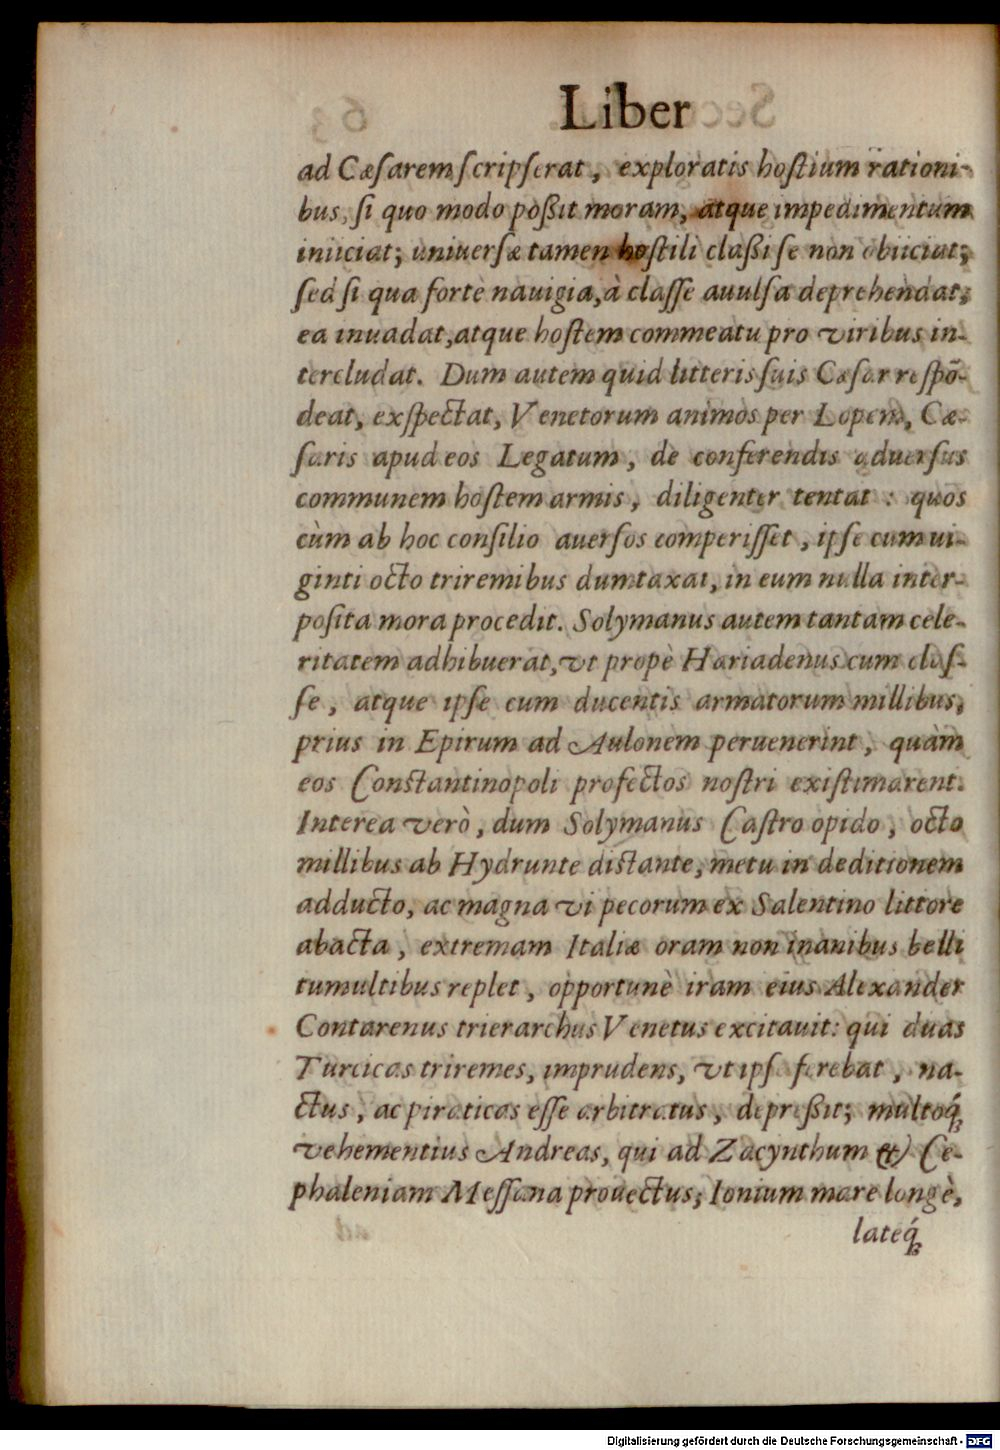 Liber
ad Cæſarem ſcripſerat, exploratis hoſtium rationi-
bus, ſi quo modo poßit moram, atque impedimentum
iniiciat; uniuerſæ tamen hoſtili claßi ſe non obiiciat;
ſed ſi qua fortè nauigia, à claſſe auulſa deprehendat;
ea inuadat, atque hoſtem commeatu pro viribus in-
tercludat. Dum autem quid litteris ſuis Cæſar reſpõ-
deat, exſpectat, Venetorum animos per Lopem, Cæ-
ſaris apud eos Legatum, de conferendis aduerſus
communem hoſtem armis, diligenter tentat: quos
cùm ab hoc conſilio auerſos comperiſſet, ipſe cum ui-
ginti octo triremibus dumtaxat, in eum nulla inter-
poſita mora procedit. Solymanus autem tantam cele-
ritatem adhibuerat, vt propè Hariadenus cum claſ-
ſe, atque ipſe cum ducentis armatorum millibus,
prius in Epirum ad Aulonem peruenerint, quàm
eos Conſtantinopoli profectos noſtri exiſtimarent.
Interea verò, dum Solymanus Caſtro opido, octo
millibus ab Hydrunte diſtante, metu in deditionem
adducto, ac magna vi pecorum ex Salentino littore
abacta, extremam Italiæ oram non inanibus belli
tumultibus replet, opportunè iram eius Alexander
Contarenus trierarchus Venetus excitauit: qui duas
Turcicas triremes, imprudens, vt ipſe ferebat, na-
ctus, ac piraticas eſſe arbitratus, depreßit; multoq́;
vehementius Andreas, qui ad Zacynthum & Ce-
phaleniam Meſſana prouectus; Ionium mare longè,
lateq́;
Digitalisierung gefördert durch die Deutsche Forschungsgemeinschaft - DFG